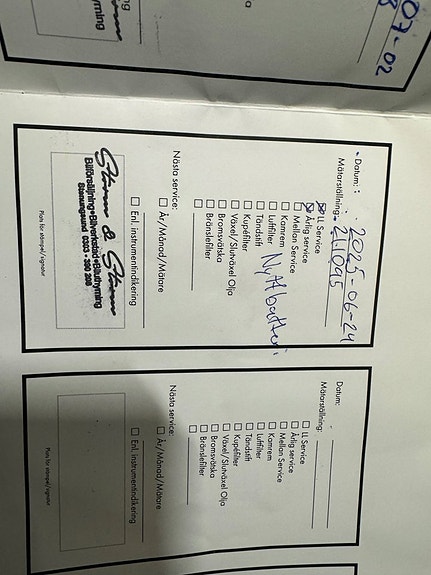 07-02
Datum: 2025-06-24
Mätarställning: 211095
☒ LL Service
☒ Årlig service
☐ Mellan Service
☐ Kamrem
☐ Luftfilter Nytt batteri
☐ Tändstift
☐ Kupéfilter
☐ Växel/Slutväxel Olja
☐ Bromsvätska
☐ Bränslefilter
Nästa service:
☐ År/Månad/Mätare
☐ Enl. instrumentindikering
Ström & Ström
Bilförsäljning•Bilverkstad•Biluthyrning
Stenungsund 0303 - 380 208
Plats för stämpel/signatur
Datum:
Mätarställning:
☐ LL Service
☐ Årlig service
☐ Mellan Service
☐ Kamrem
☐ Luftfilter
☐ Tändstift
☐ Kupéfilter
☐ Växel/Slutväxel Olja
☐ Bromsvätska
☐ Bränslefilter
Nästa service:
☐ År/Månad/Mätare
☐ Enl. instrumentindikering
Plats för stämpel/signatur